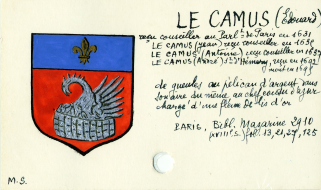 LE CAMUS (Edouard)
reçu conseiller au Parlt de Paris en 1631
LE CAMUS (Jean) reçu conseiller en 1638
LE CAMUS (Antoine) reçu conseiller en
LE CAMUS reçu en
mort en
de gueules au pélican d'argent dans
du même au chef cousu d'azur
chargé d'une fleur de lis d'or
PARIS, Bibl. Mazarine 2910
(XVIIIe s.) fol. 13, 21, 27, 125
M.S.